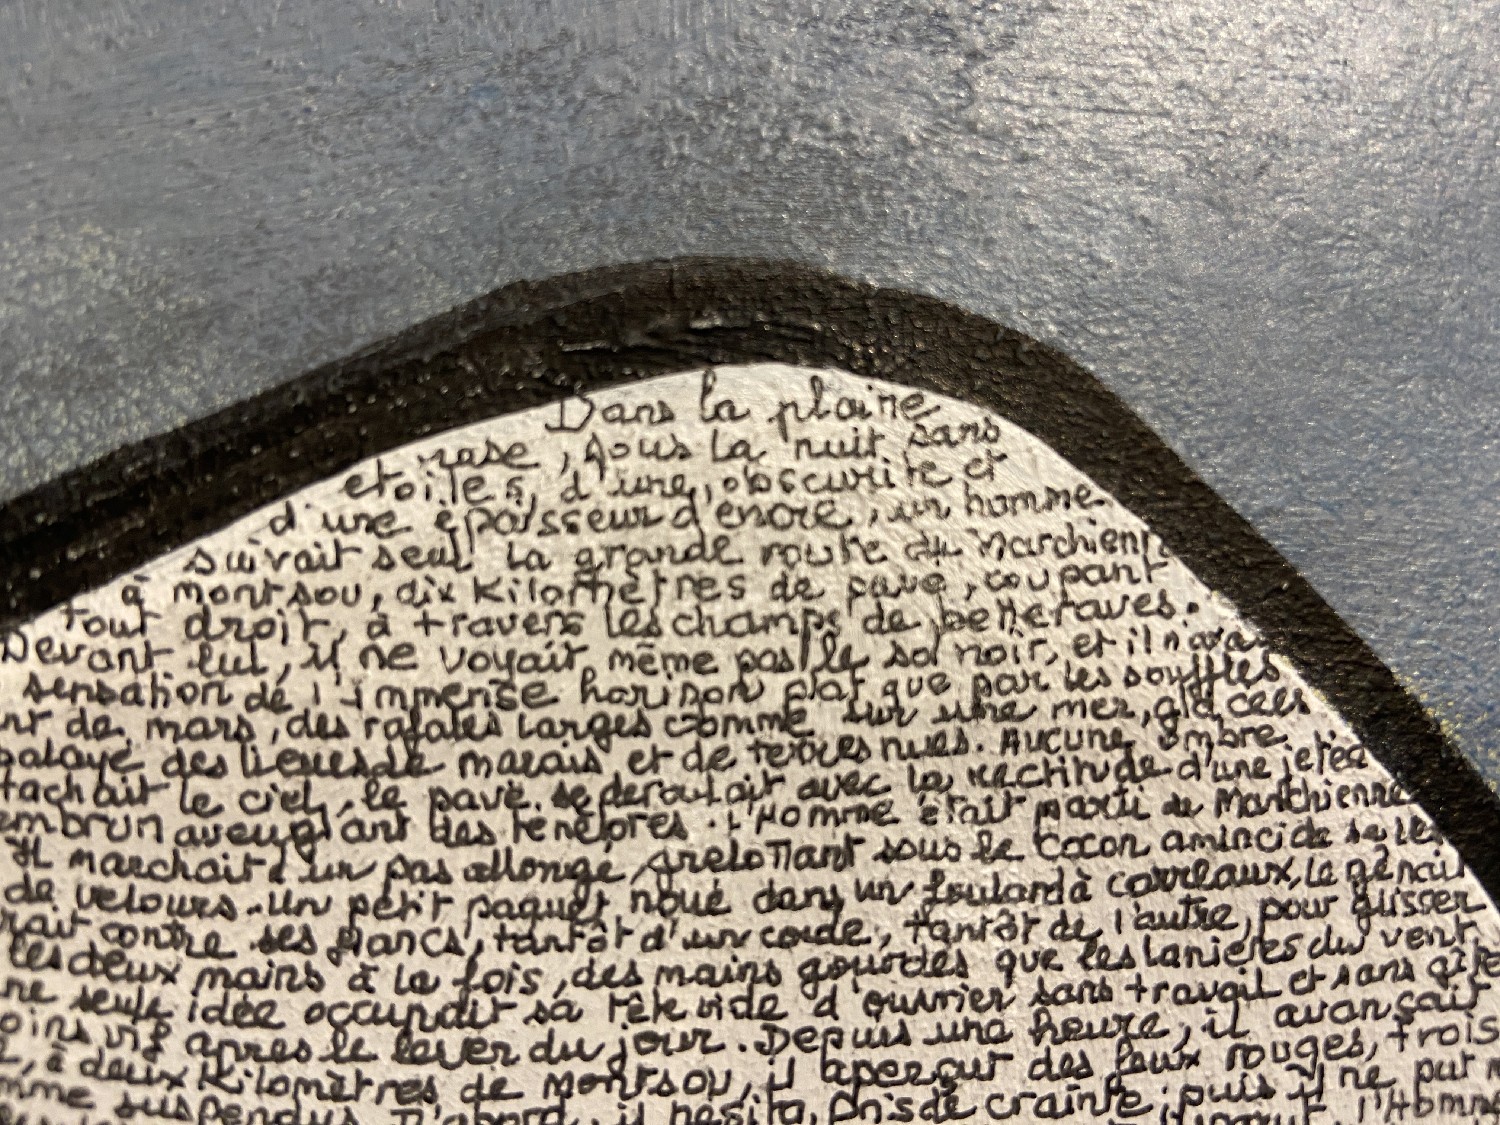 Dans la plaine
rase, sous la nuit sans
etoiles, d'une obscurité et
d'une epaisseur d'encre, un homme
suivait seul la grande route de Marchienn
à montsou, dix kilomètres de pavé, coupant
tout droit, à travers les champs de betteraves.
Devant lui, il ne voyait même pas le sol noir, et il n'avai
sensation de l'immense horizon plat que par les souffles
nt de mars, des rafales larges comme sur une mer, glacees
balayé des lieues de marais et de terres nues. Aucune ombre
tachait le ciel, le pavé se deroulait avec la rectitude d'une jetée
embrun aveuglant des tenèbres. L'Homme était parti de Marchienne
Il marchait d'un pas allongé, grelottant sous le cocon aminci de
de velours. Un petit paquet noué dans un foulard à carreaux, le gênait
rait contre ses flancs, tantôt d'un coude, tantôt de l'autre, pour glisser
les deux mains à la fois, des mains gourdes que les lanieres du vent
ne seule idée occupait sa tête vide d'ouvrier sans travail et sans gite
oins vif apres le lever du jour. Depuis une heure, il avançait
, à deux kilomètres de montsou, il aperçut des feux rouges, trois
mme suspendus. D'abord, il hésita, pris de crainte; puis il ne put
l'Homme